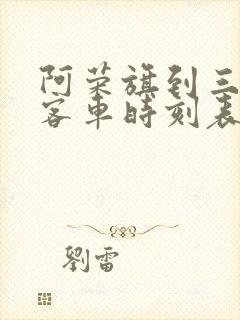 阿荣旗到三
客车时刻表
劉雷